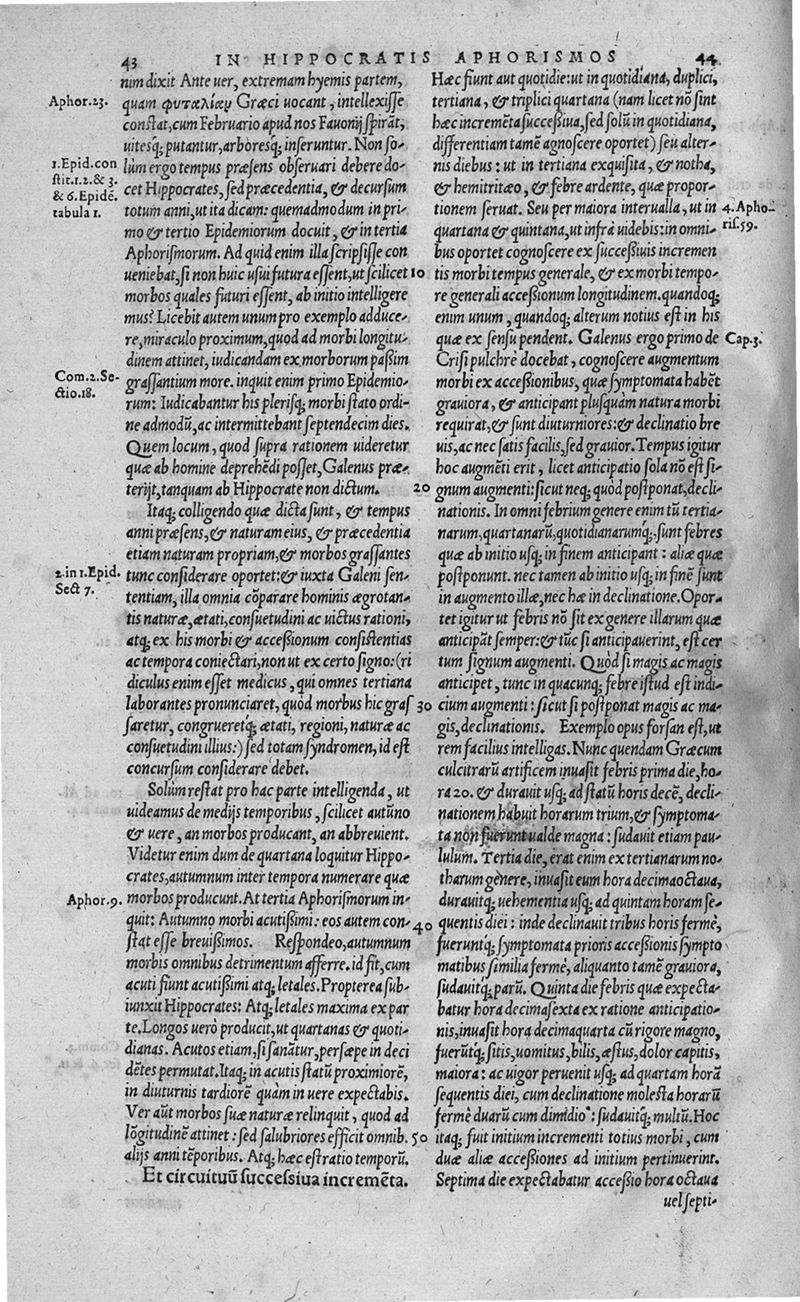 43 IN HIPPOCRATIS APHORISMOS 44
nim dixit Ante uer, extremam hyemis partem,
Aphor. 23.
quam φυταλίαν Græci uocant, intellexiſſe
conſtat, cum Februario apud nos Fauonij ſpirāt,
uitesq́; putantur, arboresq́; inſeruntur. Non ſo-
1. Epid. con
ſtit. 1. 2. & 3.
& 6. Epidē.
tabula 1.
lùm ergo tempus præſens obſeruari debere do-
cet Hippocrates, ſed præcedentia, & decurſum
totum anni, ut ita dicam: quemadmodum in pri-
mo & tertio Epidemiorum docuit, & in tertia
Aphoriſmorum. Ad quid enim illa ſcripſiſſe con
ueniebat, ſi non huic uſui futura eſſent, ut ſcilicet 10
morbos quales futuri eſſent, ab initio intelligere
mus? Licebit autem unum pro exemplo adduce-
re, miraculo proximum, quod ad morbi longitu-
dinem attinet, iudicandam ex morborum paßim
Com. 2. Se-
ctio. 18.
graſſantium more. inquit enim primo Epidemio-
rum: Iudicabantur his pleriſq; morbi ſtato ordi-
ne admodū, ac intermittebant ſeptendecim dies.
Quem locum, quod ſupra rationem uideretur
quæ ab homine deprehēdi poſſet, Galenus præ-
terijt, tanquam ab Hippocrate non dictum. 20
Itaq; colligendo quæ dicta ſunt, & tempus
anni præſens, & naturam eius, & præcedentia
etiam naturam propriam, & morbos graſſantes
2. in 1. Epid.
Sect 7.
tunc conſiderare oportet: & iuxta Galeni ſen-
tentiam, illa omnia cōparare hominis ægrotan-
tis naturæ, ætati, conſuetudini ac uictus rationi,
atq; ex his morbi & acceßionum conſiſtentias
ac tempora coniectari, non ut ex certo ſigno: (ri
diculus enim eſſet medicus, qui omnes tertiana
laborantes pronunciaret, quòd morbus hic graſ 30
ſaretur, congrueretq́; ætati, regioni, naturæ ac
conſuetudini illius:) ſed totam ſyndromen, id eſt
concurſum conſiderare debet.
Solùm reſtat pro hac parte intelligenda, ut
uideamus de medijs temporibus, ſcilicet autūno
& uere, an morbos producant, an abbreuient.
Videtur enim dum de quartana loquitur Hippo-
crates, autumnum inter tempora numerare quæ
Aphor. 9.
morbos producunt. At tertia Aphoriſmorum in-
quit: Autumno morbi acutißimi: eos autem con- 40
ſtat eſſe breuißimos. Reſpondeo, autumnum
morbis omnibus detrimentum afferre. id fit, cum
acuti fiunt acutißimi atq; letales. Propterea ſub-
iunxit Hippocrates: Atq; letales maxima ex par
te. Longos uerò producit, ut quartanas & quoti-
dianas. Acutos etiam, ſi ſanātur, perſæpe in deci
dētes permutat. Itaq; in acutis ſtatū proximiorē,
in diuturnis tardiorē quàm in uere expectabis.
Ver aūt morbos ſuæ naturæ relinquit, quod ad
lōgitudinē attinet: ſed ſalubriores efficit omnib. 50
alijs anni tēporibus. Atq; hæc eſt ratio temporū.
Et circuituū ſucceſsiua incremēta.
Hæc fiunt aut quotidie: ut in quotidiana, duplici,
tertiana, & triplici quartana (nam licet nō ſint
hæc incremēta ſucceßiua, ſed ſolū in quotidiana,
differentiam tamē agnoſcere oportet) ſeu alter-
nis diebus: ut in tertiana exquiſita, & notha,
& hemitritæo, & febre ardente, quæ propor-
tionem ſeruat. Seu per maiora interualla, ut in
4. Apho-
riſ. 59.
quartana & quintana, ut infrà uidebis: in omni-
bus oportet cognoſcere ex ſucceßiuis incremen
tis morbi tempus generale, & ex morbi tempo-
re generali acceßionum longitudinem. quandoq;
enim unum, quandoq; alterum notius eſt in his
quæ ex ſenſu pendent. Galenus ergo primo de
Cap. 3.
Criſi pulchrè docebat, cognoſcere augmentum
morbi ex acceßionibus, quæ ſymptomata habēt
grauiora, & anticipant pluſquàm natura morbi
requirat, & ſunt diuturniores: & declinatio bre
uis, ac nec ſatis facilis, ſed grauior. Tempus igitur
hoc augmēti erit, licet anticipatio ſola nō eſt ſi-
gnum augmenti: ſicut neq; quòd poſtponat, decli-
nationis. In omni febrium genere enim tū tertia-
narum, quartanarū, quotidianarumq́;, ſunt febres
quæ ab initio uſq; in finem anticipant: aliæ quæ
poſtponunt. nec tamen ab initio uſq; in finē ſunt
in augmento illæ, nec hæ in declinatione. Opor-
tet igitur ut febris nō ſit ex genere illarum quæ
anticipāt ſemper: & tūc ſi anticipauerint, eſt cer
tum ſignum augmenti. Quòd ſi magis ac magis
anticipet, tunc in quacunq; febre iſtud eſt indi-
cium augmenti: ſicut ſi poſtponat magis ac ma-
gis, declinationis. Exemplo opus forſan eſt, ut
rem facilius intelligas. Nunc quendam Græcum
culcitrarū artificem inuaſit febris prima die, ho-
ra 20. & durauit uſq; ad ſtatū horis decē, decli-
nationem habuit horarum trium, & ſymptoma-
ta non fuerunt ualde magna: ſudauit etiam pau-
lulum. Tertia die, erat enim ex tertianarum no-
tharum genere, inuaſit eum hora decimaoctaua,
durauitq́; uehementia uſq; ad quintam horam ſe-
quentis diei: inde declinauit tribus horis fermè,
fueruntq́; ſymptomata prioris acceßionis ſympto
matibus ſimilia fermè, aliquanto tamē grauiora,
ſudauitq́; parū. Quinta die febris quæ expecta-
batur hora decimaſexta ex ratione anticipatio-
nis, inuaſit hora decimaquarta cū rigore magno,
fuerūtq́; ſitis, uomitus, bilis, æſtus, dolor capitis,
maiora: ac uigor peruenit uſq; ad quartam horā
ſequentis diei, cum declinatione moleſta horarū
fermè duarū cum dimidio: ſudauitq́; multū. Hoc
itaq; fuit initium incrementi totius morbi, cum
duæ aliæ acceßiones ad initium pertinuerint.
Septima die expectabatur acceßio hora octaua
uel ſepti-